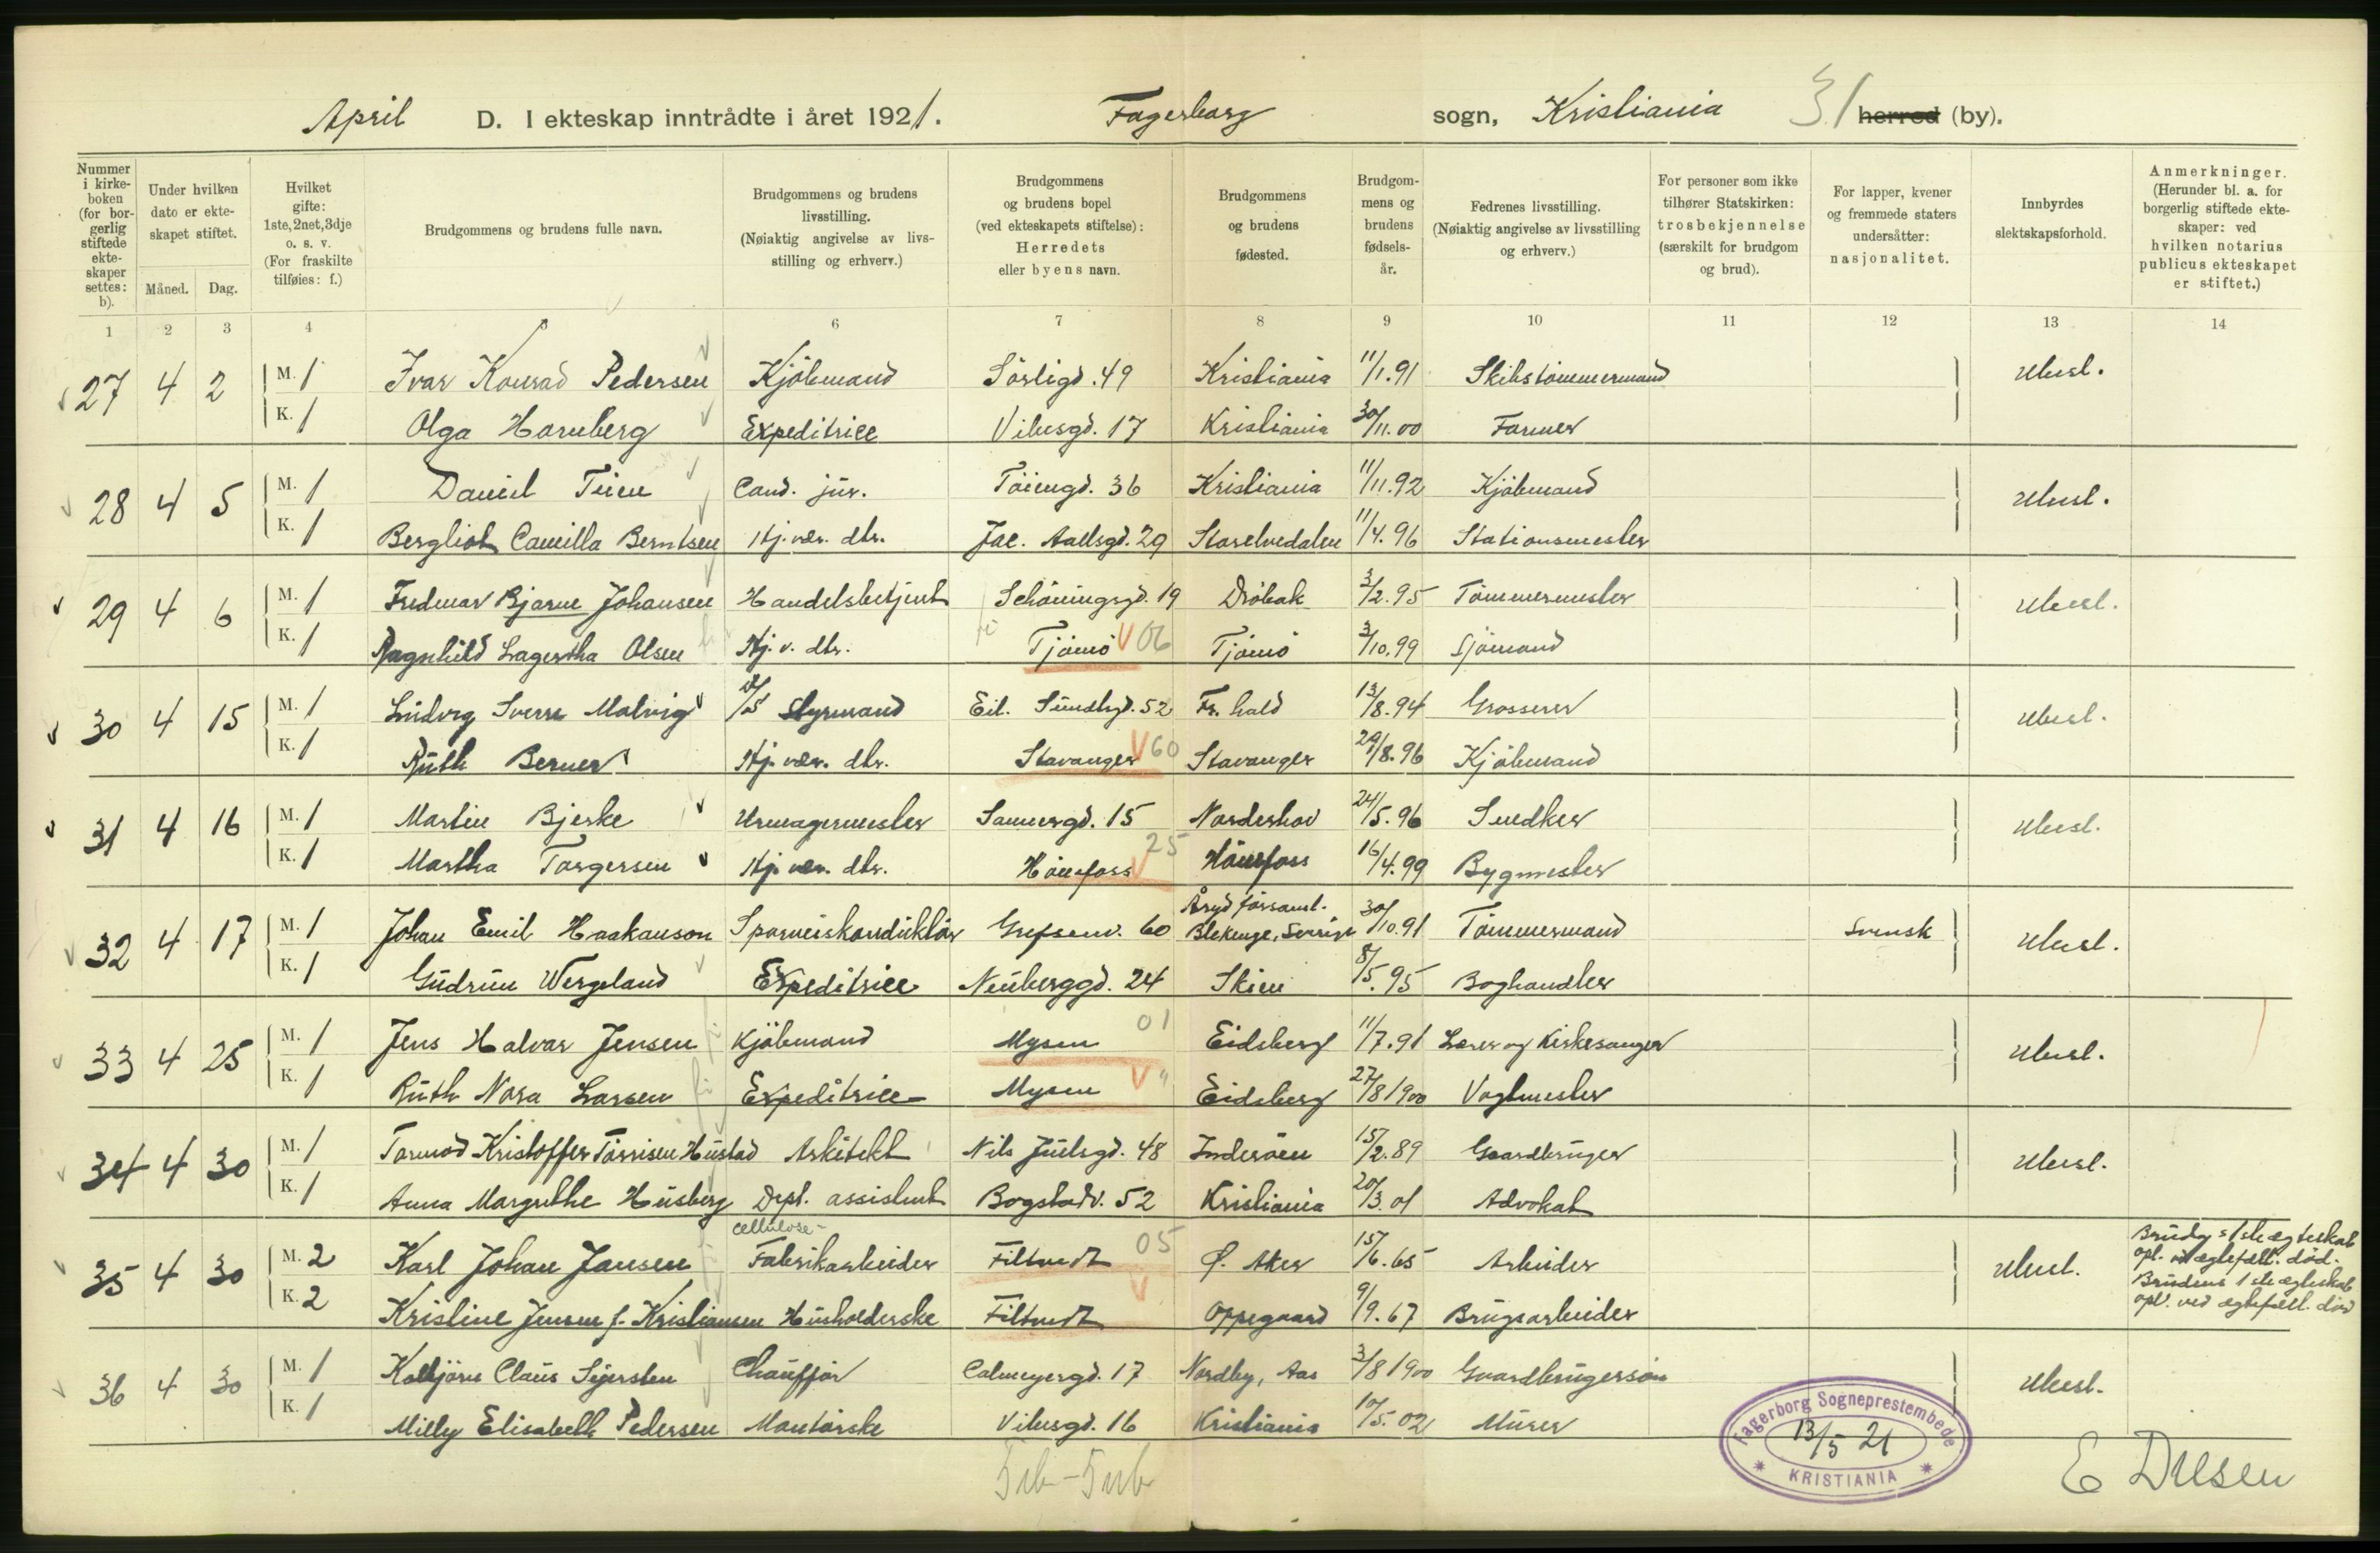 April D. I ekteskap inntrådte i året 1921. Fagerborg sogn, Kristiania 31 herred (by).
Nummer i kirkeboken (for borgerlig stiftede ekteskaper settes: b).
Under hvilken dato er ekteskapet stiftet.
Måned. Dag.
Hvilket gifte: 1ste, 2net, 3dje o. s. v. (For fraskilte tilføies: f.)
Brudgommens og brudens fulle navn.
Brudgommens og brudens livsstilling. (Nøiaktig angivelse av livsstilling og erhverv.)
Brudgommens og brudens bopel (ved ekteskapets stiftelse): Herredets eller byens navn.
Brudgommens og brudens fødested.
Brudgommens og brudens fødselsår.
Fedrenes livsstilling. (Nøiaktig angivelse av livsstilling og erhverv.)
For personer som ikke tilhører Statskirken: trosbekjennelse (særskilt for brudgom og brud).
For lapper, kvener og fremmede staters undersåtter: nasjonalitet.
Innbyrdes slektskapsforhold.
Anmerkninger. (Herunder bl. a. for borgerlig stiftede ekteskaper: ved hvilken notarius publicus ekteskapet er stiftet.)
1 2 3 4 6 7 8 9 10 11 12 13 14
27 4 2 M. 1 Ivar Konrad Pedersen Kjöbmand Sörligd. 49 Kristiania 11/1.91 Skibstömmermand Ubesl.
K. 1 Olga Hornberg Expeditrice Vibesgd. 17 Kristiania 30/11.00 Farmer
28 4 5 M. 1 Daniel Teien Cand. jur. Töiengd. 36 Kristiania 11/11.92 Kjöbmand Ubesl.
K. 1 Bergliot Camilla Berntsen Hj. vær. dtr. Jac. Aallsgd. 29 Storelvedalen 11/4.96 Stationsmester
29 4 6 M. 1 Fredmar Bjarne Johansen Handelsbetjent Schöningsgd. 19 Dröbak 3/2.95 Tömmermester Ubesl.
K. 1 Ragnhild Lagertha Olsen Hj. v. dtr. Tjömö 06 Tjömö 3/10.99 Sjömand
30 4 15 M. 1 Ludvig Sverre Malvig Styrmand Eil. Sundtsgd. 52 Fr. hald 13/8.94 Grosserer Ubesl.
K. 1 Ruth Berner Hj. vær. dtr. Stavanger 60 Stavanger 29/8.96 Kjöbmand
31 4 16 M. 1 Martin Bjerke Urmagermester Sannergd. 15 Norderhov 24/5.96 Snedker Ubesl.
K. 1 Martha Torgersen Hj. vær. dtr. Hönefoss 25 Hönefoss 16/4.99 Bygmester
32 4 17 M. 1 Johan Emil Haakanson Sporveiskonduktör Grefsenv. 60 Åryd församl. Blekinge, Sverige 30/10.91 Tömmermand Svensk Ubesl.
K. 1 Gudrun Wergeland Expeditrice Neuberggd. 24 Skien 8/5.95 Boghandler
33 4 25 M. 1 Jens Halvar Jensen Kjöbmand Mysen 01 Eidsberg 11/7.91 Lærer og Kirkesanger Ubesl.
K. 1 Ruth Nora Larsen Expeditrice Mysen " Eidsberg 27/8 1900 Vogtmester
34 4 30 M. 1 Tormod Kristoffer Törrisen Hustad Arkitekt Nils Juelsgd. 48 Inderöen 15/2.89 Gaardbruger Ubesl.
K. 1 Anna Margrethe Husberg Dept. assistent Bogstadv. 52 Kristiania 20/3.01 Advokat
35 4 30 M. 2 Karl Johan Jansen cellulose- Fabrikarbeider Filtvedt 05 Ø. Aker 15/6.65 Arbeider Ubesl. Brudg.s 1ste ægteskab opl. ved ægtefæll. död.
K. 2 Kristine Jensen f. Kristiansen Husholderske Filtvedt Oppegaard 9/9.67 Brugsarbeider Brudens 1ste ægteskab opl. ved ægtefæll. död
36 4 30 M. 1 Kolbjörn Claus Sijersten Chaufför Calmeyergd. 17 Nordby, Aas 3/8 1900 Gaardbrugersön Ubesl.
K. 1 Milly Elisabeth Pedersen Montörske Vibesgd. 16 Kristiania 10/5.02 Murer
Fagerborg Sogneprestembede
13/5 21
KRISTIANIA